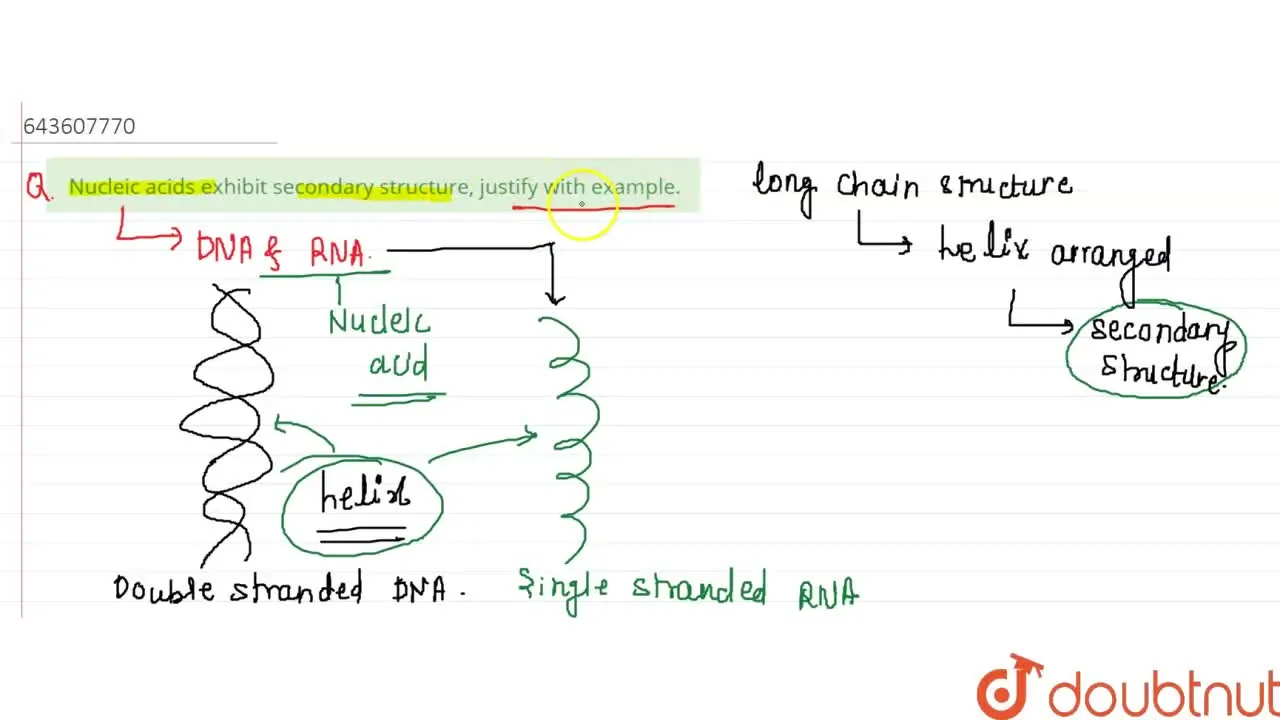 643607770
Q. Nucleic acids exhibit secondary structure, justify with example.
long chain structure
helix arranged
secondary
structure.
DNA & RNA.
Nucleic
acid
helix
Double stranded DNA.
Single stranded RNA
doubtnut